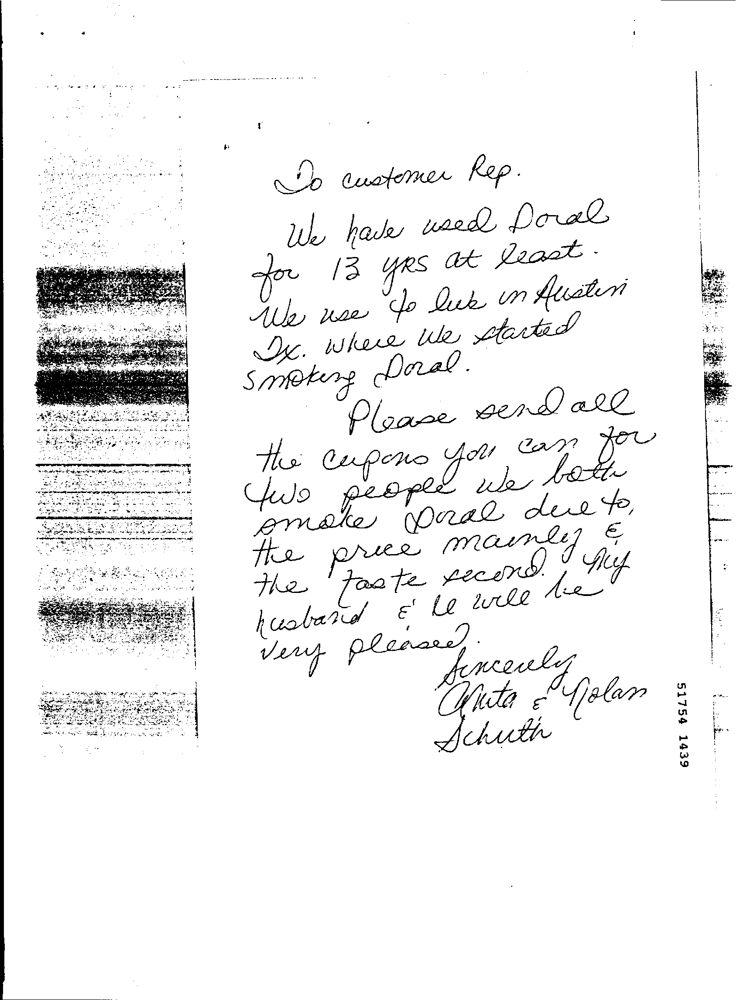 To customer Rep.
We have used Doral
for 13 YRS at least.
We use to live in Austin
Tx. where we started
smoking Doral.
Please send all
the cupons you can for
two people we both
smoke Doral due to,
the price mainly &
the taste second. My
husband & I will be
very pleased.
Sincerely
Anita & Nolan
Schuth
51754 1439